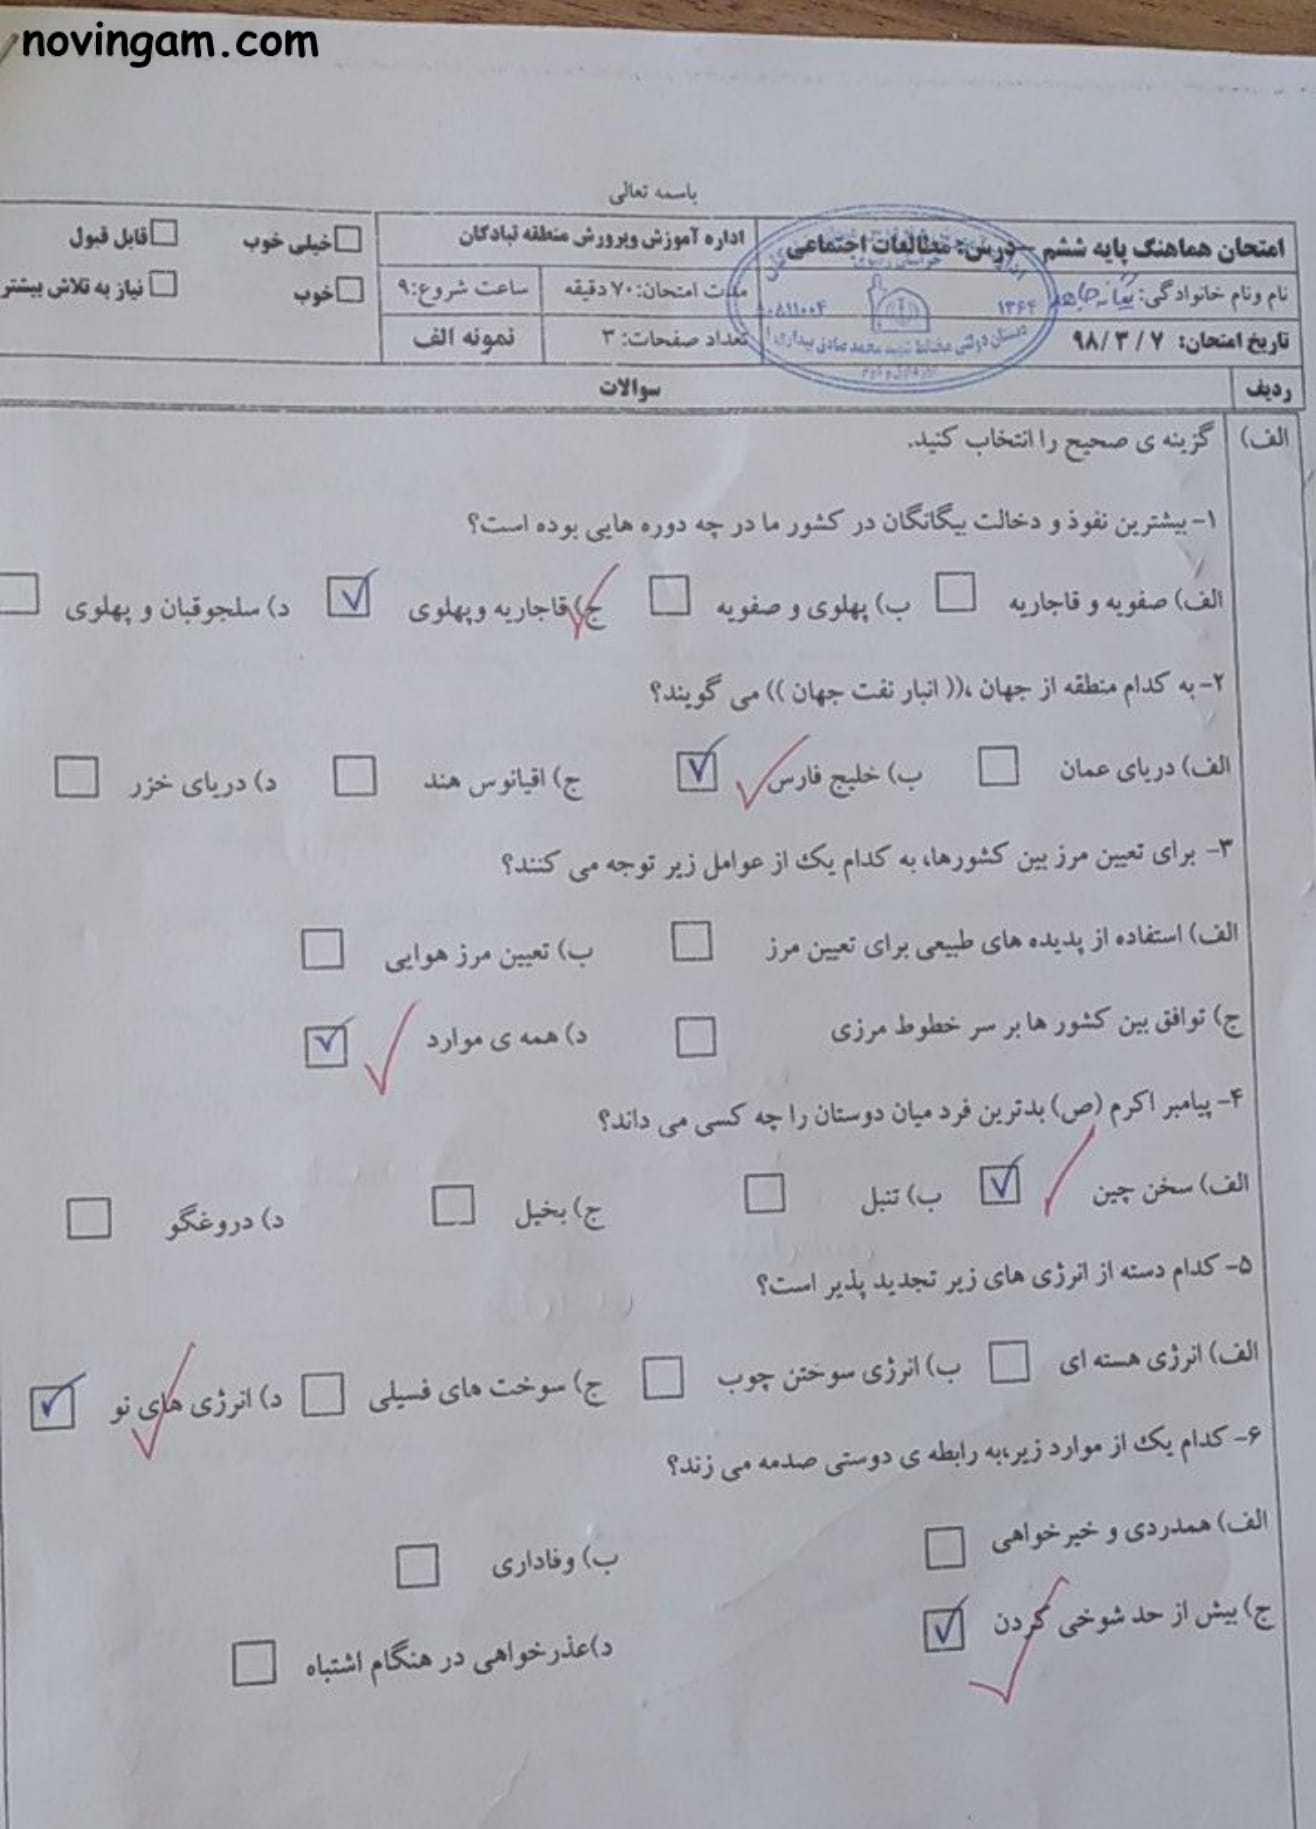 novingam.com
باسمه تعالی
امتحان هماهنگ پایه ششم – درس: مطالعات اجتماعی
اداره آموزش وپرورش منطقه تبادکان
خیلی خوب
قابل قبول
نام ونام خانوادگی:
مدت امتحان: ۷۰ دقیقه
ساعت شروع: ۹
خوب
نیاز به تلاش بیشتر
تاریخ امتحان: ۹۸/۳/۷
تعداد صفحات: ۳
نمونه الف
۱۳۶۴
دبستان دولتی مختلط شهید محمد صادق بیداری ۱
ردیف
سوالات
الف) گزینه ی صحیح را انتخاب کنید.
۱- بیشترین نفوذ و دخالت بیگانگان در کشور ما در چه دوره هایی بوده است؟
الف) صفویه و قاجاریه ب) پهلوی و صفویه ج) قاجاریه وپهلوی د) سلجوقیان و پهلوی
۲- به کدام منطقه از جهان ،(( انبار نفت جهان )) می گویند؟
الف) دریای عمان ب) خلیج فارس ج) اقیانوس هند د) دریای خزر
۳- برای تعیین مرز بین کشورها، به کدام یک از عوامل زیر توجه می کنند؟
الف) استفاده از پدیده های طبیعی برای تعیین مرز ب) تعیین مرز هوایی
ج) توافق بین کشور ها بر سر خطوط مرزی د) همه ی موارد
۴- پیامبر اکرم (ص) بدترین فرد میان دوستان را چه کسی می داند؟
الف) سخن چین ب) تنبل ج) بخیل د) دروغگو
۵- کدام دسته از انرژی های زیر تجدید پذیر است؟
الف) انرژی هسته ای ب) انرژی سوختن چوب ج) سوخت های فسیلی د) انرژی های نو
۶- کدام یک از موارد زیر،به رابطه ی دوستی صدمه می زند؟
الف) همدردی و خیرخواهی ب) وفاداری
ج) بیش از حد شوخی کردن د)عذرخواهی در هنگام اشتباه